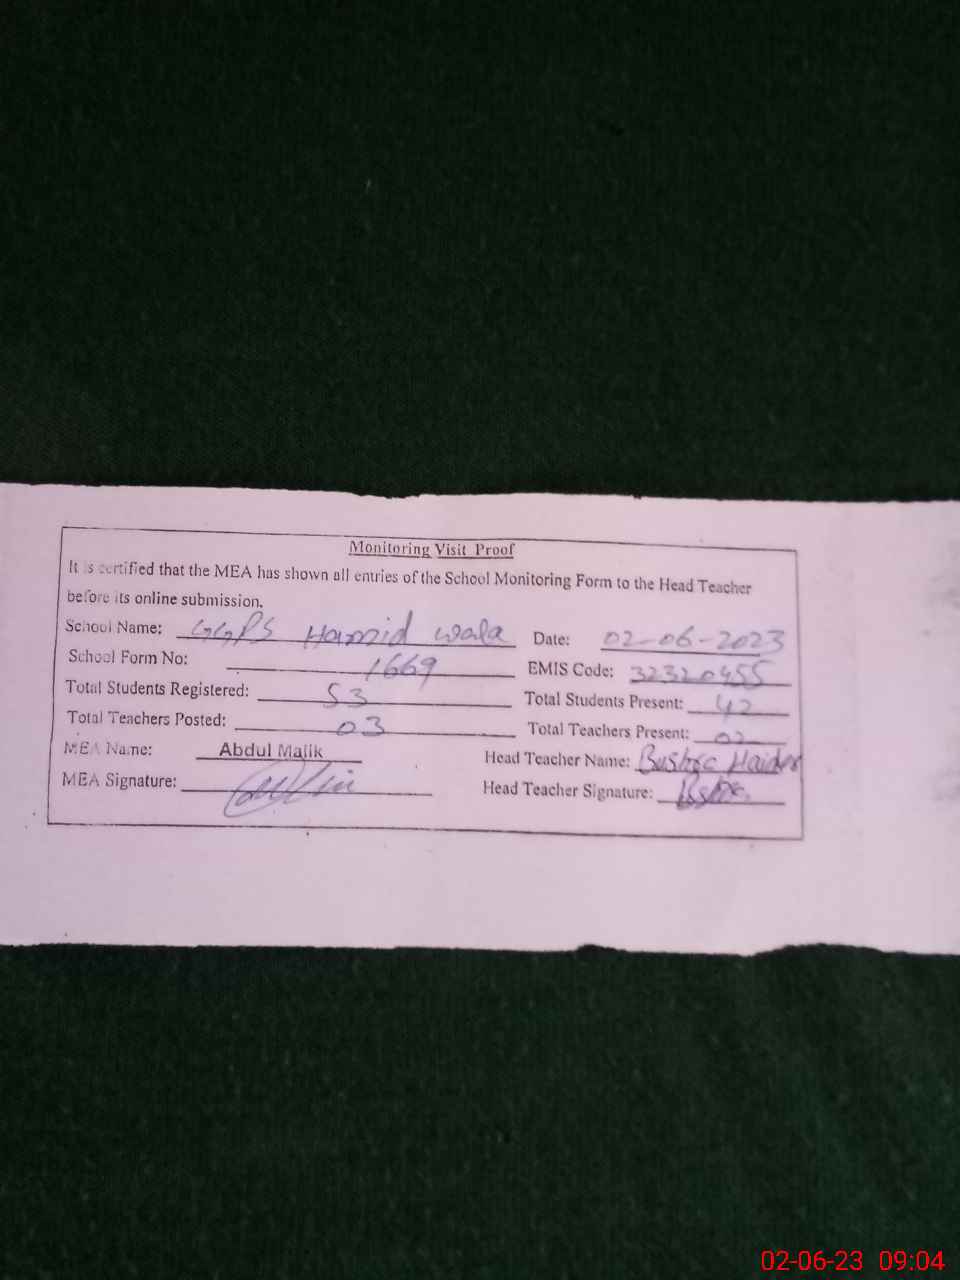 Monitoring Visit Proof
It is certified that the MEA has shown all entries of the School Monitoring Form to the Head Teacher
before its online submission.
School Name: GGPS Hamid wala Date: 02-06-2023
School Form No: 1669 EMIS Code: 32320455
Total Students Registered: 53 Total Students Present: 42
Total Teachers Posted: 03 Total Teachers Present: 02
MEA Name: Abdul Malik Head Teacher Name: Bushra Haider
MEA Signature: Head Teacher Signature:
02-06-23 09:04